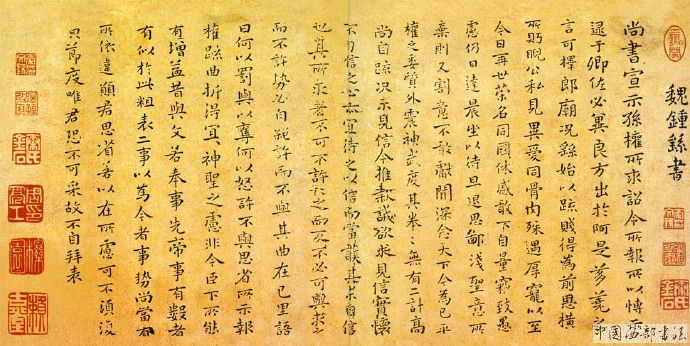 魏鍾繇書
尚書宣示孫權所求詔令所報所以博示
逮于卿佐必冀良方出於阿是芻蕘之
言可擇郎廟況繇始以疏賤得為前恩橫
所盱睨公私見異愛同骨肉殊遇厚寵以至
今日再世榮名同國休慼敢不自量竊致愚
慮仍日達晨坐以待旦退思鄙淺聖意所
棄則又割意不敢獻聞深念天下今為已平
權之委質外震神武度其拳々無有二計高
尚自疏況未見信今推款誠欲求見信實懷
不自信之心亦宜待之以信而當護其未自信
也其所求者不可不許許之而反不必可與求之
而不許勢必自絕許而不與其曲在己里語
曰何以罰與以奪何以怒許不與思省所示報
權疏曲折得宜宜神聖之慮非今臣下所能
有增益昔與文若奉事先帝事有數者
有似於此粗表二事以為今者事勢尚當有
所依違願君思省若以在所慮可不須復
貌節度唯君恐不可采故不自拜表
中國西部書法